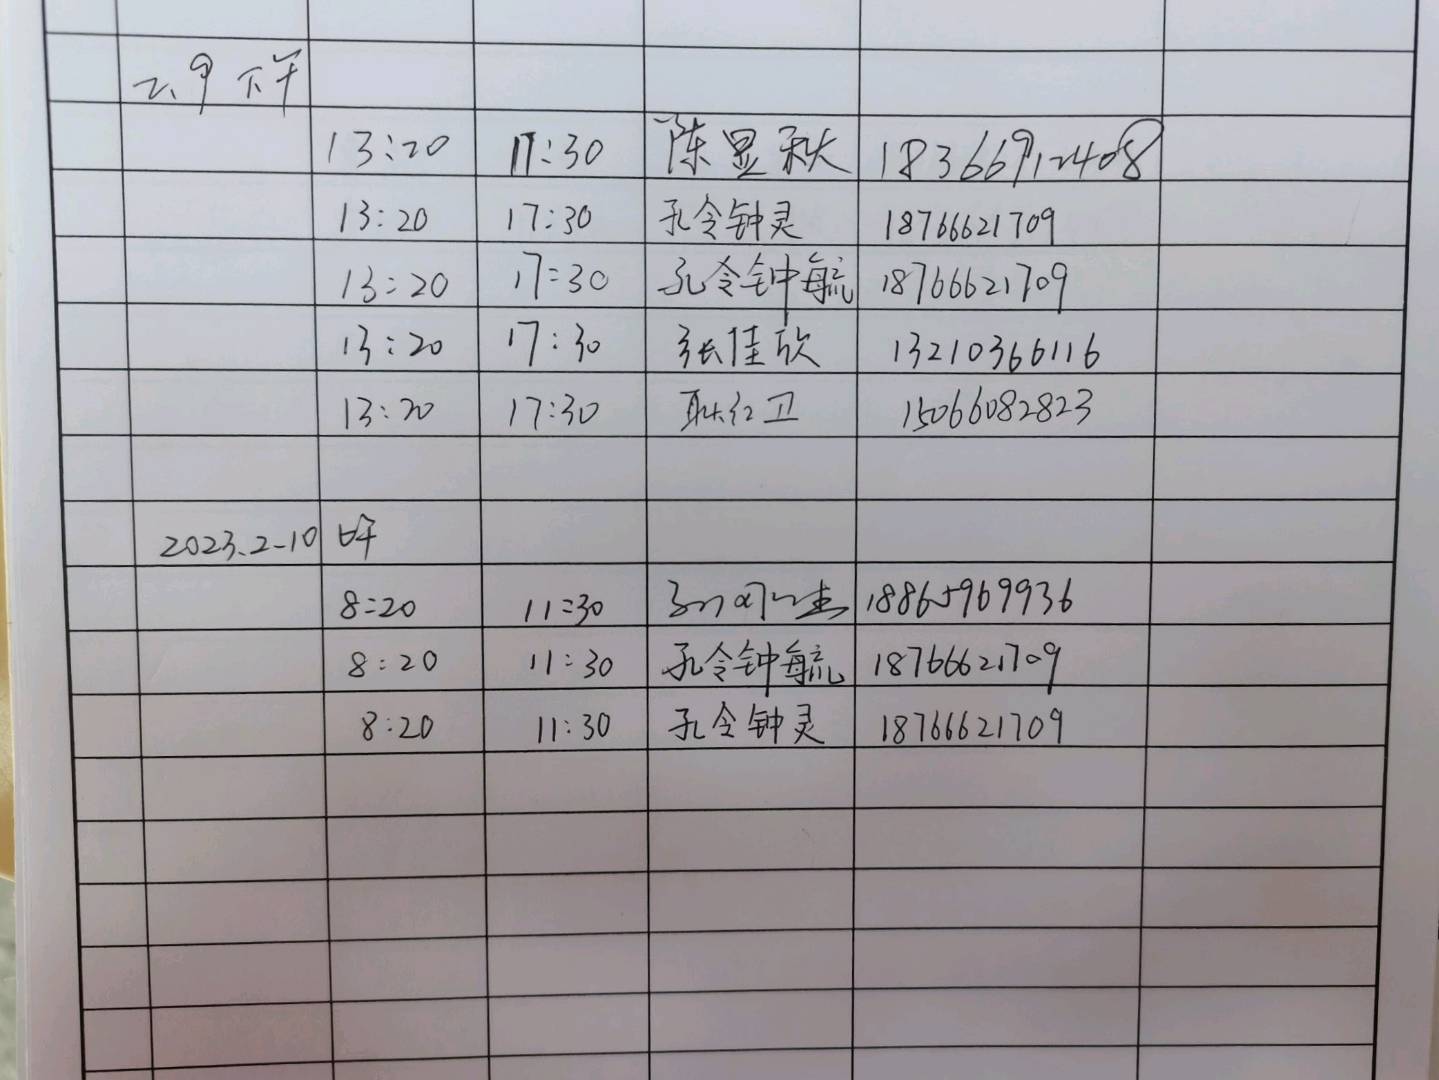 2.9 下午
13:20 17:30 陈显秋 18366912408
13:20 17:30 孔令钟灵 18766621709
13:20 17:30 孔令钟毓 18766621709
13:20 17:30 张佳欣 13210366116
13:20 17:30 耿红卫 15066082823
2023.2-10 上午
8:20 11:30 18865969936
8:20 11:30 孔令钟毓 18766621709
8:20 11:30 孔令钟灵 18766621709